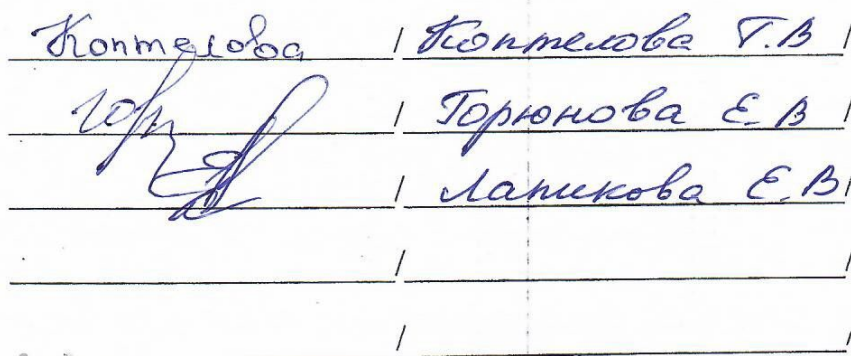 Коптелова / Коптелова Т.В /
Гор / Горюнова Е.В /
/ Лапикова Е.В /
/ /
/ /